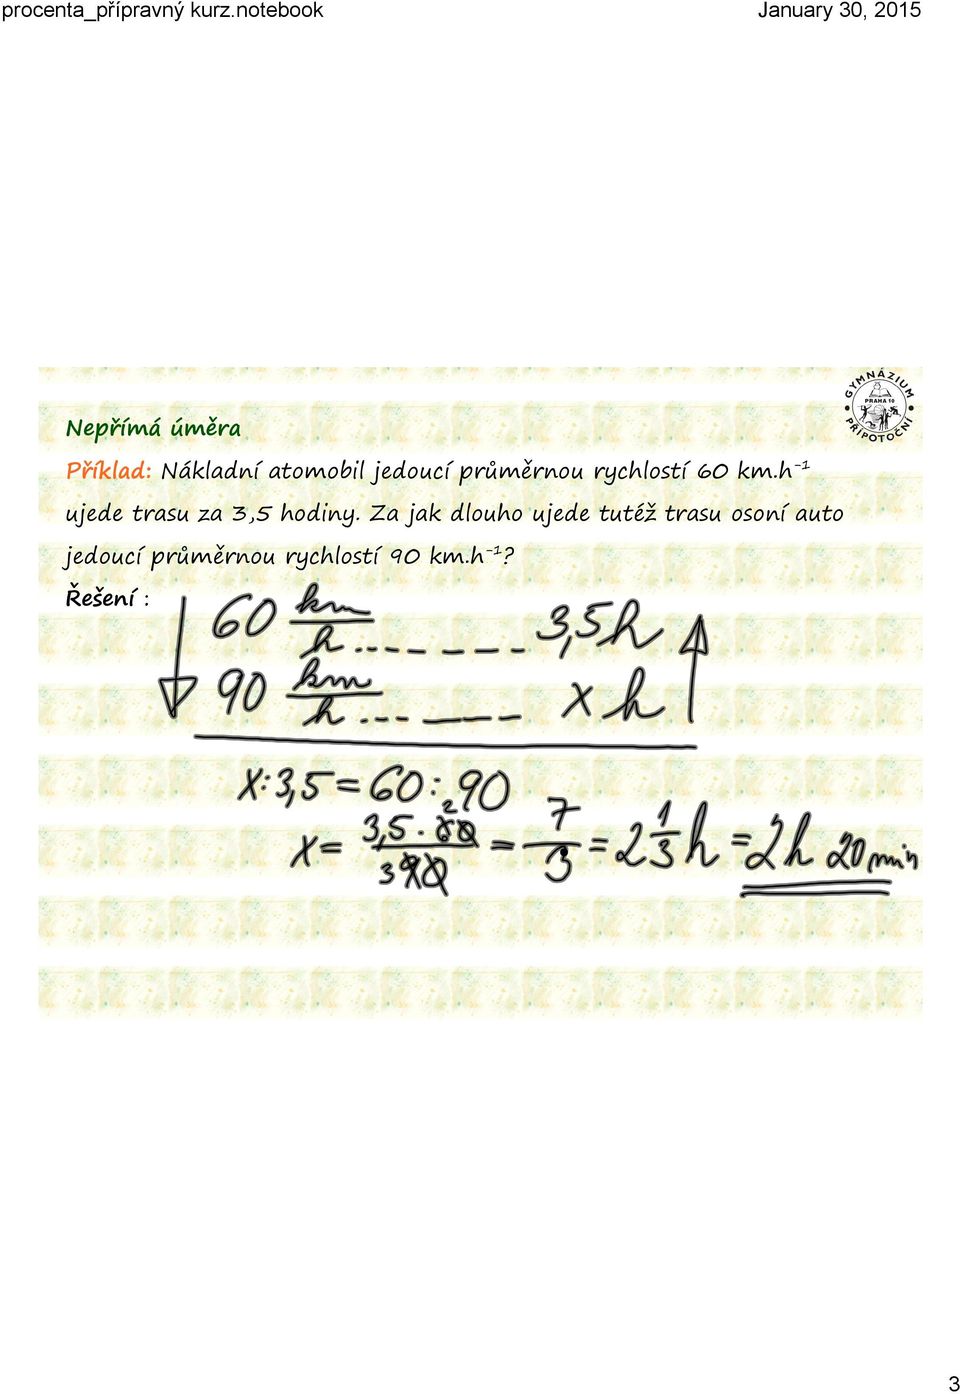 procenta_přípravný kurz.notebook January 30, 2015
GYMNÁZIUM
PRAHA 10
PŘÍPOTOČNÍ
Nepřímá úměra
Příklad: Nákladní atomobil jedoucí průměrnou rychlostí 60 km.h⁻¹
ujede trasu za 3,5 hodiny. Za jak dlouho ujede tutéž trasu osoní auto
jedoucí průměrnou rychlostí 90 km.h⁻¹?
Řešení :
60 km/h ... - - - - - 3,5h
90 km/h ... - - - - x h
x:3,5=60:90
x= 3,5·60 2 / 3 90 = 7/3 = 2 1/3 h = 2h 20 min
3